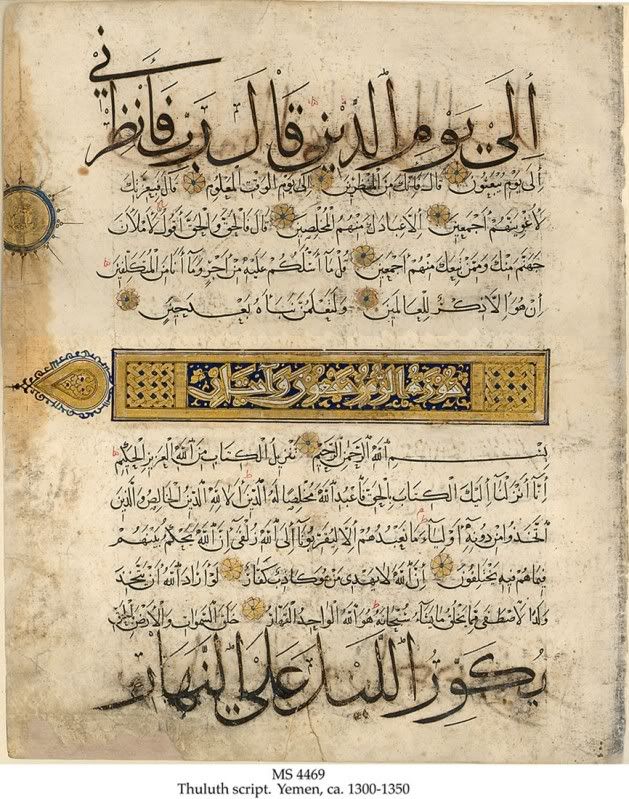 إلى يوم الدين قال رب فأنظرني
إلى يوم يبعثون قال فإنك من المنظرين إلى يوم الوقت المعلوم قال فبعزتك
لأغوينهم أجمعين إلا عبادك منهم المخلصين قال فالحق والحق أقول لأملأن
جهنم منك وممن تبعك منهم أجمعين قل ما أسألكم عليه من أجر وما أنا من المتكلفين
إن هو إلا ذكر للعالمين ولتعلمن نبأه بعد حين
سورة الزمر سبعون
بسم الله الرحمن الرحيم تنزيل الكتاب من الله العزيز الحكيم
إنا أنزلنا إليك الكتاب بالحق فاعبد الله مخلصا له الدين ألا لله الدين الخالص والذين
اتخذوا من دونه أولياء ما نعبدهم إلا ليقربونا إلى الله زلفى إن الله يحكم بينهم
فيما هم فيه يختلفون إن الله لا يهدي من هو كاذب كفار لو أراد الله أن يتخذ
ولدا لاصطفى مما يخلق ما يشاء سبحانه هو الله الواحد القهار خلق السموات والأرض بالحق
يكور الليل على النهار
MS 4469
Thuluth script. Yemen, ca. 1300-1350